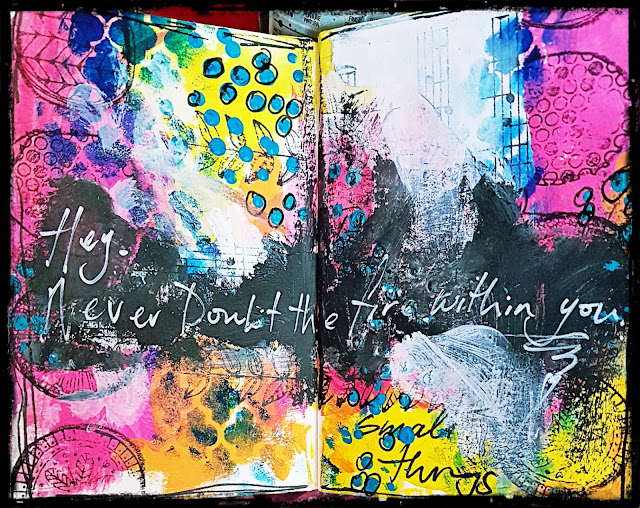 Hey.
Never Doubt the fire within you.
Small
things